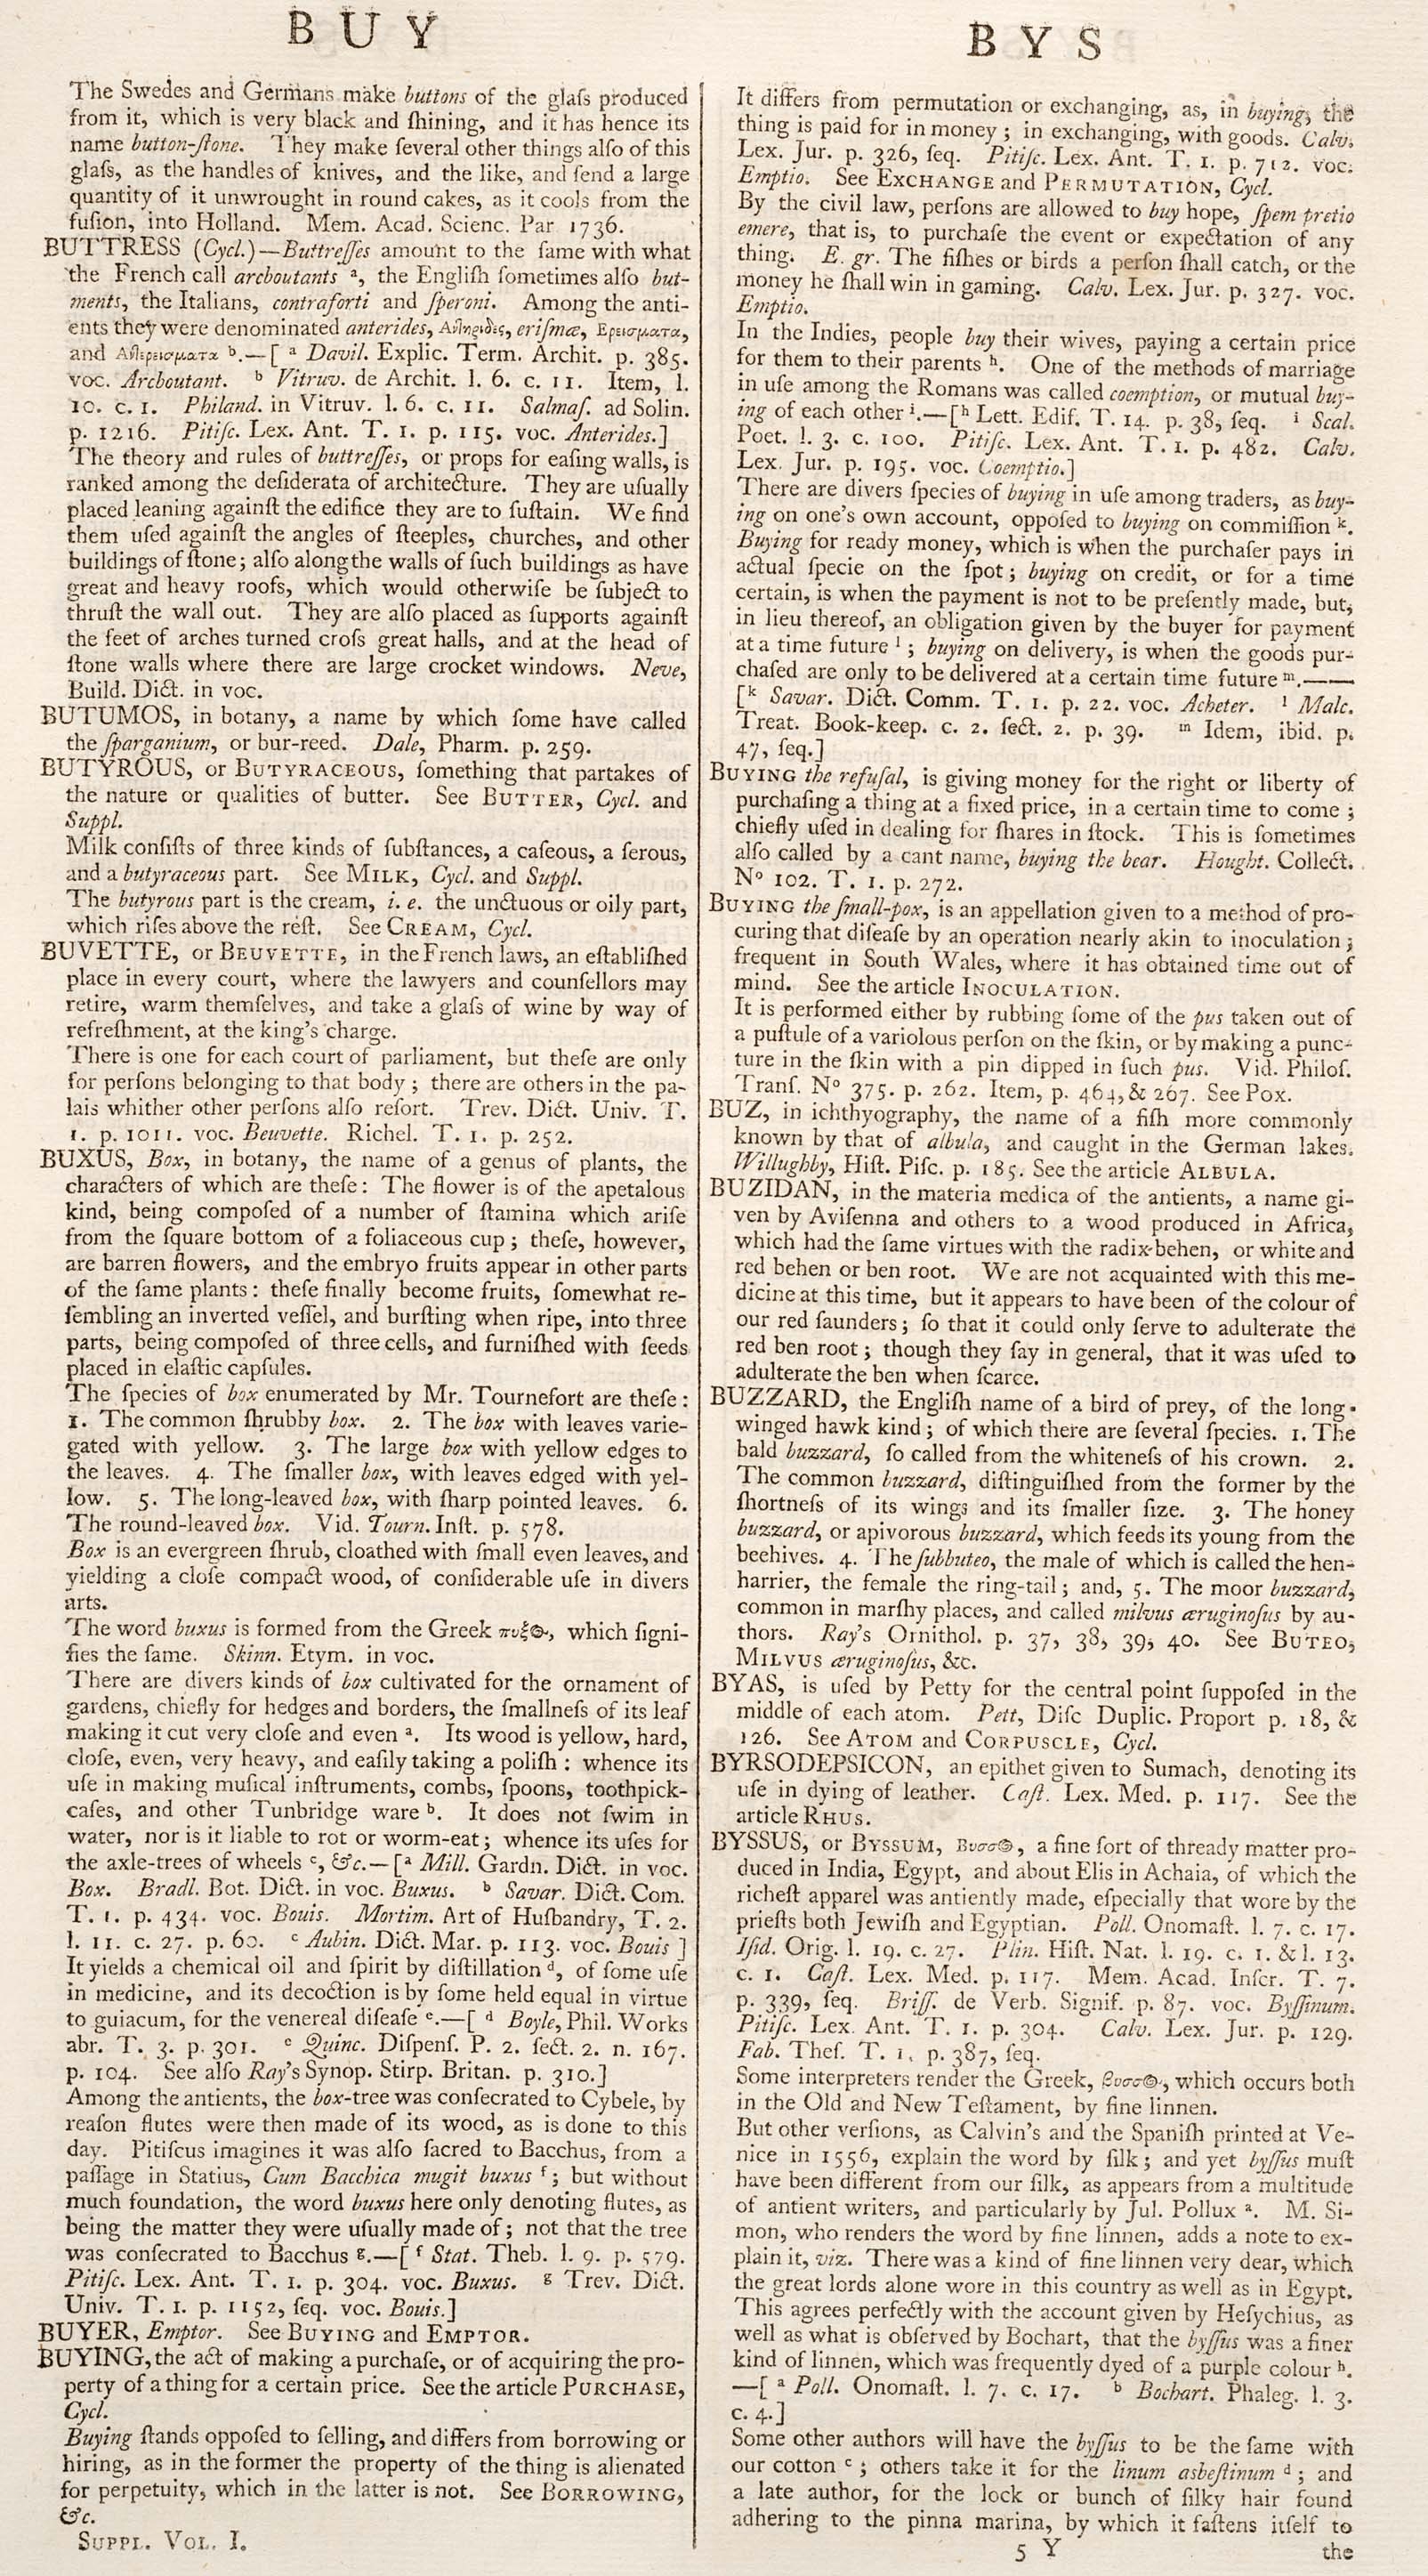 B U Y
The Swedes and Germans make buttons of the glaſs produced
from it, which is very black and ſhining, and it has hence its
name button-ſtone. They make ſeveral other things alſo of this
glaſs, as the handles of knives, and the like, and ſend a large
quantity of it unwrought in round cakes, as it cools from the
fuſion, into Holland. Mem. Acad. Scienc. Par 1736.
BUTTRESS (Cycl.)—Buttreſſes amount to the ſame with what
the French call arcboutants ᵃ, the Engliſh ſometimes alſo but-
ments, the Italians, contraforti and ſperoni. Among the anti-
ents they were denominated anterides, eriſmæ, Ερεισματα,
and ᵇ.—[ ᵃ Davil. Explic. Term. Archit. p. 385.
voc. Arcboutant. ᵇ Vitruv. de Archit. l. 6. c. 11. Item, l.
10. c. 1. Philand. in Vitruv. l. 6. c. 11. Salmaſ. ad Solin.
p. 1216. Pitiſc. Lex. Ant. T. 1. p. 115. voc. Anterides.]
The theory and rules of buttreſſes, or props for eaſing walls, is
ranked among the deſiderata of architecture. They are uſually
placed leaning againſt the edifice they are to ſuſtain. We find
them uſed againſt the angles of ſteeples, churches, and other
buildings of ſtone; alſo along the walls of ſuch buildings as have
great and heavy roofs, which would otherwiſe be ſubject to
thruſt the wall out. They are alſo placed as ſupports againſt
the feet of arches turned croſs great halls, and at the head of
ſtone walls where there are large crocket windows. Neve,
Build. Dict. in voc.
BUTUMOS, in botany, a name by which ſome have called
the ſparganium, or bur-reed. Dale, Pharm. p. 259.
BUTYROUS, or BUTYRACEOUS, ſomething that partakes of
the nature or qualities of butter. See BUTTER, Cycl. and
Suppl.
Milk conſiſts of three kinds of ſubſtances, a caſeous, a ſerous,
and a butyraceous part. See MILK, Cycl. and Suppl.
The butyrous part is the cream, i. e. the unctuous or oily part,
which riſes above the reſt. See CREAM, Cycl.
BUVETTE, or BEUVETTE, in the French laws, an eſtabliſhed
place in every court, where the lawyers and counſellors may
retire, warm themſelves, and take a glaſs of wine by way of
refreſhment, at the king's charge.
There is one for each court of parliament, but theſe are only
for perſons belonging to that body; there are others in the pa-
lais whither other perſons alſo reſort. Trev. Dict. Univ. T.
1. p. 1011. voc. Beuvette. Richel. T. 1. p. 252.
BUXUS, Box, in botany, the name of a genus of plants, the
characters of which are theſe: The flower is of the apetalous
kind, being compoſed of a number of ſtamina which ariſe
from the ſquare bottom of a foliaceous cup; theſe, however,
are barren flowers, and the embryo fruits appear in other parts
of the ſame plants: theſe finally become fruits, ſomewhat re-
ſembling an inverted veſſel, and burſting when ripe, into three
parts, being compoſed of three cells, and furniſhed with ſeeds
placed in elaſtic capſules.
The ſpecies of box enumerated by Mr. Tournefort are theſe:
1. The common ſhrubby box. 2. The box with leaves varie-
gated with yellow. 3. The large box with yellow edges to
the leaves. 4. The ſmaller box, with leaves edged with yel-
low. 5. The long-leaved box, with ſharp pointed leaves. 6.
The round-leaved box. Vid. Tourn. Inſt. p. 578.
Box is an evergreen ſhrub, cloathed with ſmall even leaves, and
yielding a cloſe compact wood, of conſiderable uſe in divers
arts.
The word buxus is formed from the Greek πυξος, which ſigni-
fies the ſame. Skinn. Etym. in voc.
There are divers kinds of box cultivated for the ornament of
gardens, chiefly for hedges and borders, the ſmallneſs of its leaf
making it cut very cloſe and even ᵃ. Its wood is yellow, hard,
cloſe, even, very heavy, and eaſily taking a poliſh: whence its
uſe in making muſical inſtruments, combs, ſpoons, toothpick-
caſes, and other Tunbridge ware ᵇ. It does not ſwim in
water, nor is it liable to rot or worm-eat; whence its uſes for
the axle-trees of wheels ᶜ, &c.—[ᵃ Mill. Gardn. Dict. in voc.
Box. Bradl. Bot. Dict. in voc. Buxus. ᵇ Savar. Dict. Com.
T. 1. p. 434. voc. Bouis. Mortim. Art of Huſbandry, T. 2.
l. 11. c. 27. p. 60. ᶜ Aubin. Dict. Mar. p. 113. voc. Bouis ]
It yields a chemical oil and ſpirit by diſtillation ᵈ, of ſome uſe
in medicine, and its decoction is by ſome held equal in virtue
to guiacum, for the venereal diſeaſe ᵉ.—[ ᵈ Boyle, Phil. Works
abr. T. 3. p. 301. ᵉ Quinc. Diſpenſ. P. 2. ſect. 2. n. 167.
p. 104. See alſo Ray's Synop. Stirp. Britan. p. 310.]
Among the antients, the box-tree was conſecrated to Cybele, by
reaſon flutes were then made of its wood, as is done to this
day. Pitiſcus imagines it was alſo ſacred to Bacchus, from a
paſſage in Statius, Cum Bacchica mugit buxus ᶠ; but without
much foundation, the word buxus here only denoting flutes, as
being the matter they were uſually made of; not that the tree
was conſecrated to Bacchus ᵍ.—[ ᶠ Stat. Theb. l. 9. p. 579.
Pitiſc. Lex. Ant. T. 1. p. 304. voc. Buxus. ᵍ Trev. Dict.
Univ. T. 1. p. 1152, ſeq. voc. Bouis.]
BUYER, Emptor. See BUYING and EMPTOR.
BUYING, the act of making a purchaſe, or of acquiring the pro-
perty of a thing for a certain price. See the article PURCHASE,
Cycl.
Buying ſtands oppoſed to ſelling, and differs from borrowing or
hiring, as in the former the property of the thing is alienated
for perpetuity, which in the latter is not. See BORROWING,
&c.
SUPPL. VOL. I.
B Y S
It differs from permutation or exchanging, as, in buying, the
thing is paid for in money; in exchanging, with goods. Calv.
Lex. Jur. p. 326, ſeq. Pitiſc. Lex. Ant. T. 1. p. 712. voc.
Emptio. See EXCHANGE and PERMUTATION, Cycl.
By the civil law, perſons are allowed to buy hope, ſpem pretio
emere, that is, to purchaſe the event or expectation of any
thing. E. gr. The fiſhes or birds a perſon ſhall catch, or the
money he ſhall win in gaming. Calv. Lex. Jur. p. 327. voc.
Emptio.
In the Indies, people buy their wives, paying a certain price
for them to their parents ʰ. One of the methods of marriage
in uſe among the Romans was called coemption, or mutual buy-
ing of each other ⁱ.—[ʰ Lett. Edif. T. 14. p. 38, ſeq. ⁱ Scal.
Poet. l. 3. c. 100. Pitiſc. Lex. Ant. T. 1. p. 482. Calv.
Lex. Jur. p. 195. voc. Coemptio.]
There are divers ſpecies of buying in uſe among traders, as buy-
ing on one's own account, oppoſed to buying on commiſſion ᵏ.
Buying for ready money, which is when the purchaſer pays in
actual ſpecie on the ſpot; buying on credit, or for a time
certain, is when the payment is not to be preſently made, but,
in lieu thereof, an obligation given by the buyer for payment
at a time future ˡ; buying on delivery, is when the goods pur-
chaſed are only to be delivered at a certain time future ᵐ.——
[ᵏ Savar. Dict. Comm. T. 1. p. 22. voc. Acheter. ˡ Malc.
Treat. Book-keep. c. 2. ſect. 2. p. 39. ᵐ Idem, ibid. p.
47, ſeq.]
BUYING the refuſal, is giving money for the right or liberty of
purchaſing a thing at a fixed price, in a certain time to come;
chiefly uſed in dealing for ſhares in ſtock. This is ſometimes
alſo called by a cant name, buying the bear. Hought. Collect.
Nº 102. T. 1. p. 272.
BUYING the ſmall-pox, is an appellation given to a method of pro-
curing that diſeaſe by an operation nearly akin to inoculation;
frequent in South Wales, where it has obtained time out of
mind. See the article INOCULATION.
It is performed either by rubbing ſome of the pus taken out of
a puſtule of a variolous perſon on the ſkin, or by making a punc-
ture in the ſkin with a pin dipped in ſuch pus. Vid. Philoſ.
Tranſ. Nº 375. p. 262. Item, p. 464, & 267. See POX.
BUZ, in ichthyography, the name of a fiſh more commonly
known by that of albula, and caught in the German lakes.
Willughby, Hiſt. Piſc. p. 185. See the article ALBULA.
BUZIDAN, in the materia medica of the antients, a name gi-
ven by Aviſenna and others to a wood produced in Africa,
which had the ſame virtues with the radix-behen, or white and
red behen or ben root. We are not acquainted with this me-
dicine at this time, but it appears to have been of the colour of
our red ſaunders; ſo that it could only ſerve to adulterate the
red ben root; though they ſay in general, that it was uſed to
adulterate the ben when ſcarce.
BUZZARD, the Engliſh name of a bird of prey, of the long-
winged hawk kind; of which there are ſeveral ſpecies. 1. The
bald buzzard, ſo called from the whiteneſs of his crown. 2.
The common buzzard, diſtinguiſhed from the former by the
ſhortneſs of its wings and its ſmaller ſize. 3. The honey
buzzard, or apivorous buzzard, which feeds its young from the
beehives. 4. The ſubbuteo, the male of which is called the hen-
harrier, the female the ring-tail; and, 5. The moor buzzard,
common in marſhy places, and called milvus æruginoſus by au-
thors. Ray's Ornithol. p. 37, 38, 39, 40. See BUTEO,
MILVUS æruginoſus, &c.
BYAS, is uſed by Petty for the central point ſuppoſed in the
middle of each atom. Pett, Diſc Duplic. Proport p. 18, &
126. See ATOM and CORPUSCLE, Cycl.
BYRSODEPSICON, an epithet given to Sumach, denoting its
uſe in dying of leather. Caſt. Lex. Med. p. 117. See the
article RHUS.
BYSSUS, or BYSSUM, Βυσσος, a fine ſort of thready matter pro-
duced in India, Egypt, and about Elis in Achaia, of which the
richeſt apparel was antiently made, eſpecially that wore by the
prieſts both Jewiſh and Egyptian. Poll. Onomaſt. l. 7. c. 17.
Iſid. Orig. l. 19. c. 27. Plin. Hiſt. Nat. l. 19. c. 1. & l. 13.
c. 1. Caſt. Lex. Med. p. 117. Mem. Acad. Inſcr. T. 7.
p. 339, ſeq. Briſſ. de Verb. Signif. p. 87. voc. Byſſinum.
Pitiſc. Lex. Ant. T. 1. p. 304. Calv. Lex. Jur. p. 129.
Fab. Theſ. T. 1. p. 387, ſeq.
Some interpreters render the Greek, βυσσος, which occurs both
in the Old and New Teſtament, by fine linnen.
But other verſions, as Calvin's and the Spaniſh printed at Ve-
nice in 1556, explain the word by ſilk; and yet byſſus muſt
have been different from our ſilk, as appears from a multitude
of antient writers, and particularly by Jul. Pollux ᵃ. M. Si-
mon, who renders the word by fine linnen, adds a note to ex-
plain it, viz. There was a kind of fine linnen very dear, which
the great lords alone wore in this country as well as in Egypt.
This agrees perfectly with the account given by Heſychius, as
well as what is obſerved by Bochart, that the byſſus was a finer
kind of linnen, which was frequently dyed of a purple colour ʰ.
—[ ᵃ Poll. Onomaſt. l. 7. c. 17. ᵇ Bochart. Phaleg. l. 3.
c. 4.]
Some other authors will have the byſſus to be the ſame with
our cotton ᶜ; others take it for the linum asbeſtinum ᵈ; and
a late author, for the lock or bunch of ſilky hair found
adhering to the pinna marina, by which it faſtens itſelf to
5 Y
the